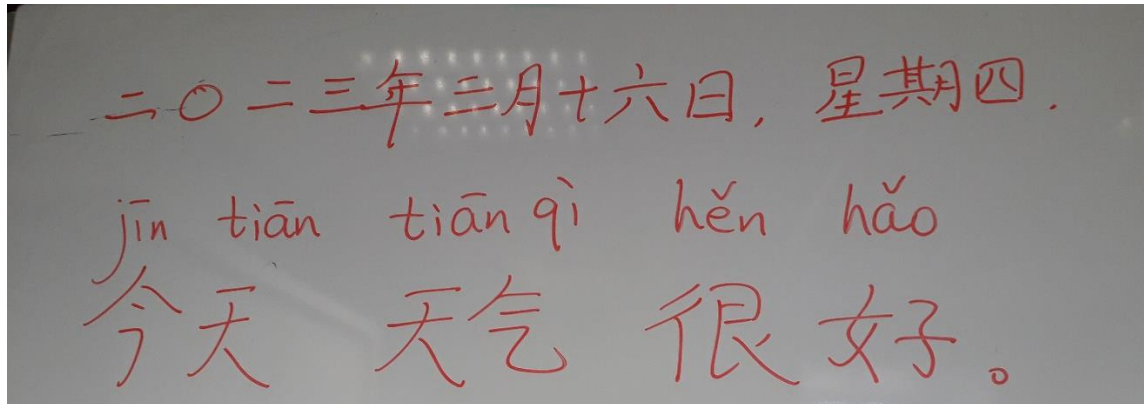 二〇二三年三月十六日, 星期四.
jīn tiān tiān qì hěn hǎo
今天 天气 很 好。